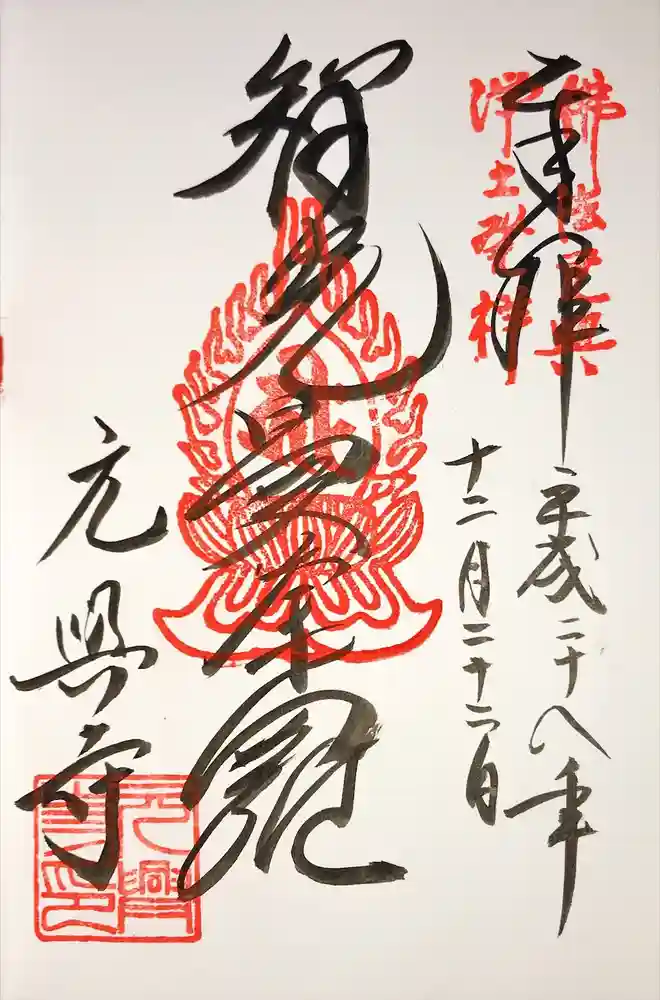 奉拝
佛法元興
淨土發祥
平成二十八年
十二月二十二日
智光曼荼羅
元興寺
元興
寺印